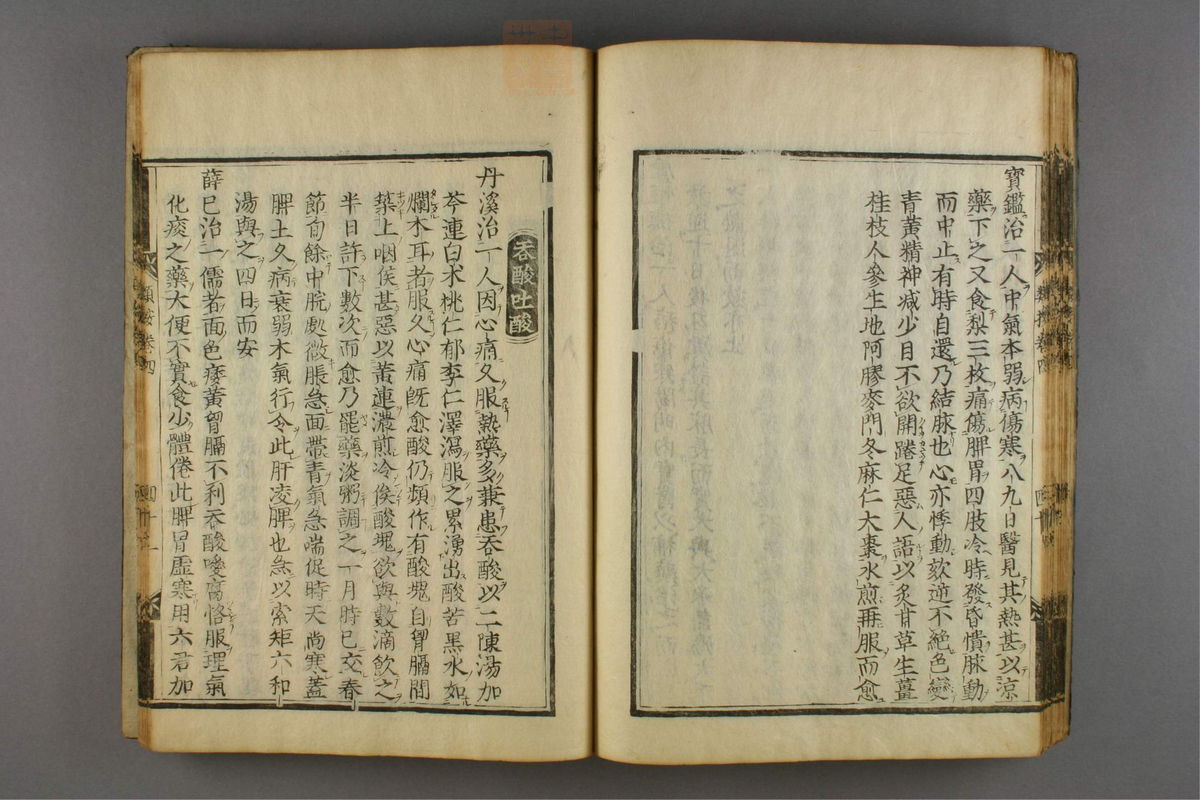 寶鑑治一人中氣本弱病傷寒八九日醫見其熱甚以涼
藥下之又食梨三枚痛傷脾胃四肢冷時發昏憒脉動
而中止有時自還乃結脉也心亦悸動欬逆不絕色變
青黃精神減少目不欲開踡足惡人語以炙甘草生薑
桂枝人參生地阿膠麥門冬麻仁大棗水煎再服而愈
吞酸吐酸
丹溪治一人因心痛久服熱藥多兼患吞酸以二陳湯加
芩連白朮桃仁郁李仁澤瀉服之累湧出酸苦黑水如
爛木耳者服久心痛旣愈酸仍頻作有酸塊自胷膈間
築上咽侯甚惡以黃連濃煎冷俟酸塊欲與數滴飲之
半日許下數次而愈乃罷藥淡粥調之一月時已交春
節旬餘中脘處微脹急面帶青氣急喘促時天尚寒蓋
脾土久病衰弱木氣行令此肝凌脾也急以索矩六和
湯與之四日而安
薛已治一儒者面色痿黃胷膈不利吞酸噯腐恪服理氣
化痰之藥大便不實食少體倦此脾胃虛寒用六君加
類按卷四